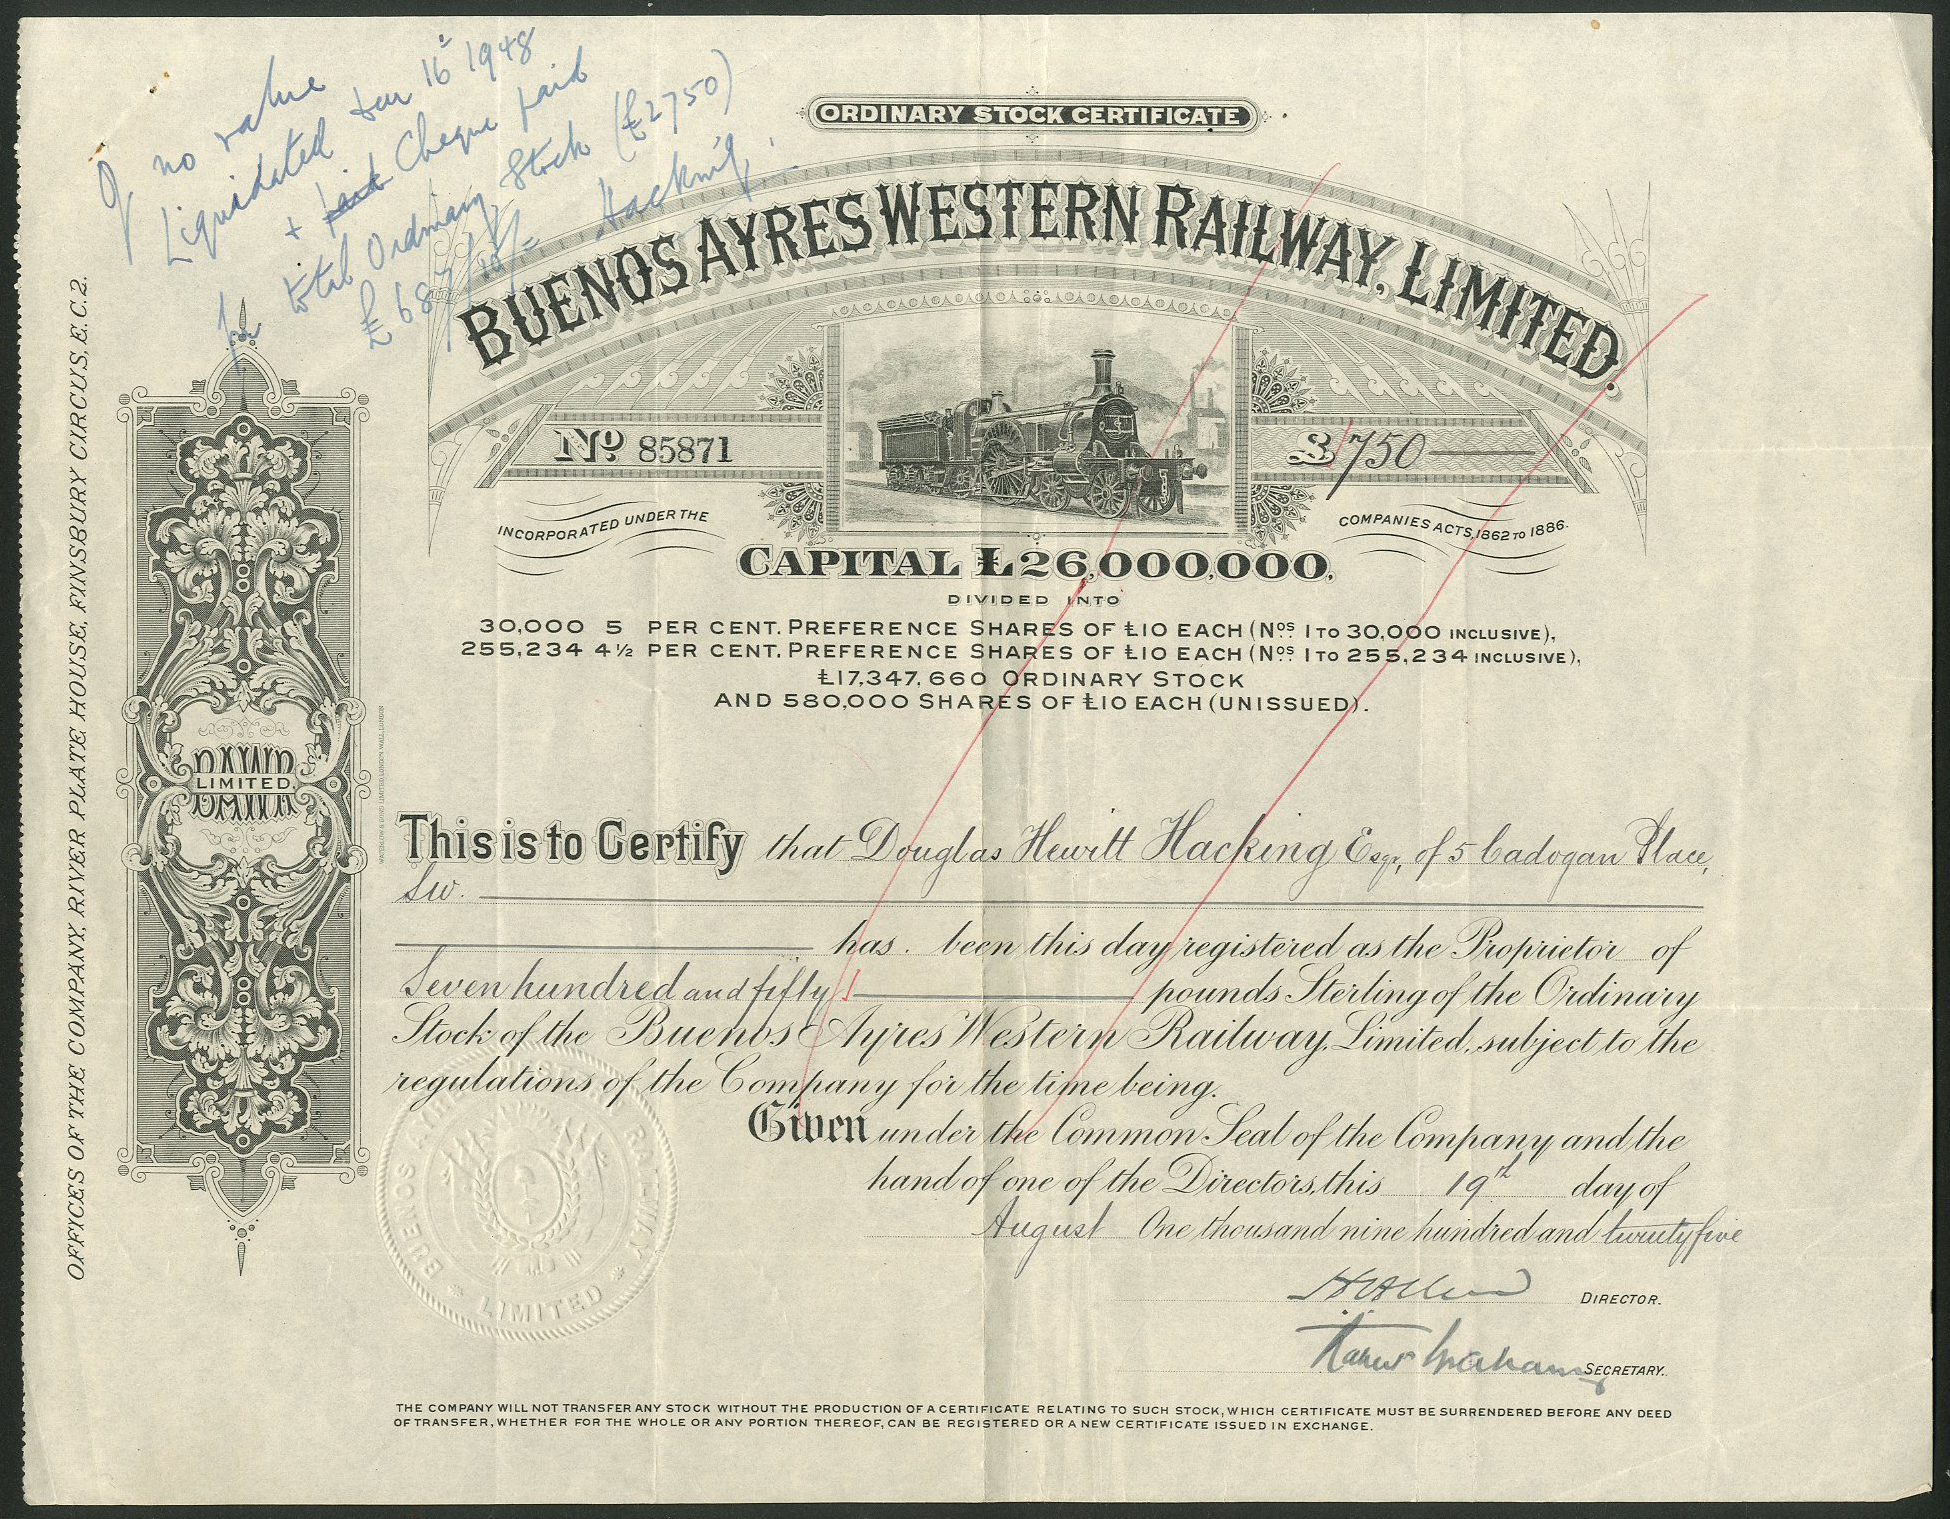 Of no value
Liquidated Jan 16 1948
+ paid Cheque paid
for total Ordinary Stock (£2750)
£687/10/= Hacking.
ORDINARY STOCK CERTIFICATE
BUENOS AYRES WESTERN RAILWAY, LIMITED.
No 85871
£750
INCORPORATED UNDER THE
COMPANIES ACTS, 1862 TO 1886.
CAPITAL £26,000,000,
DIVIDED INTO
30,000 5 PER CENT. PREFERENCE SHARES OF £10 EACH (Nos. 1 TO 30,000 INCLUSIVE),
255,234 4½ PER CENT. PREFERENCE SHARES OF £10 EACH (Nos. 1 TO 255,234 INCLUSIVE),
£17,347,660 ORDINARY STOCK
AND 580,000 SHARES OF £10 EACH (UNISSUED).
OFFICES OF THE COMPANY, RIVER PLATE HOUSE, FINSBURY CIRCUS, E.C.2.
BAWR
LIMITED.
BAWR
WATERLOW & SONS LIMITED, LONDON WALL, LONDON
This is to Certify that Douglas Hewitt Hacking Esqr, of 5 Cadogan Place,
SW.
has been this day registered as the Proprietor of
Seven hundred and fifty pounds Sterling of the Ordinary
Stock of the Buenos Ayres Western Railway, Limited, subject to the
regulations of the Company for the time being.
Given under the Common Seal of the Company and the
hand of one of the Directors, this 19th day of
August One thousand nine hundred and twenty five
DIRECTOR.
SECRETARY.
BUENOS AYRES WESTERN RAILWAY
* LIMITED *
THE COMPANY WILL NOT TRANSFER ANY STOCK WITHOUT THE PRODUCTION OF A CERTIFICATE RELATING TO SUCH STOCK, WHICH CERTIFICATE MUST BE SURRENDERED BEFORE ANY DEED
OF TRANSFER, WHETHER FOR THE WHOLE OR ANY PORTION THEREOF, CAN BE REGISTERED OR A NEW CERTIFICATE ISSUED IN EXCHANGE.